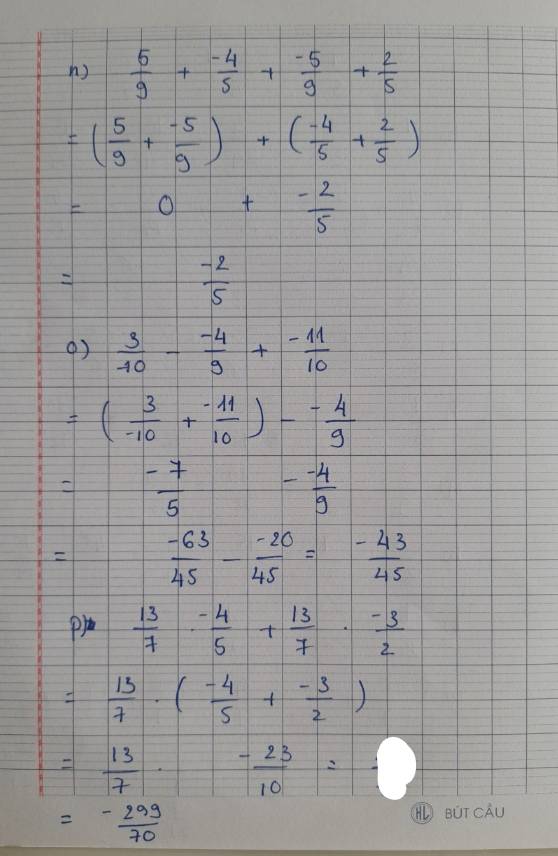 n) 5/9 + -4/5 + -5/9 + 2/5
= (5/9 + -5/9) + (-4/5 + 2/5)
= 0 + -2/5
= -2/5
o) 3/-10 - -4/9 + -11/10
= (3/-10 + -11/10) - -4/9
= -7/5 - -4/9
= -63/45 - -20/45 = -43/45
p) 13/7 . -4/5 + 13/7 . -3/2
= 13/7 . (-4/5 + -3/2)
= 13/7 . -23/10 =
= -299/70
HL BÚT CÂU